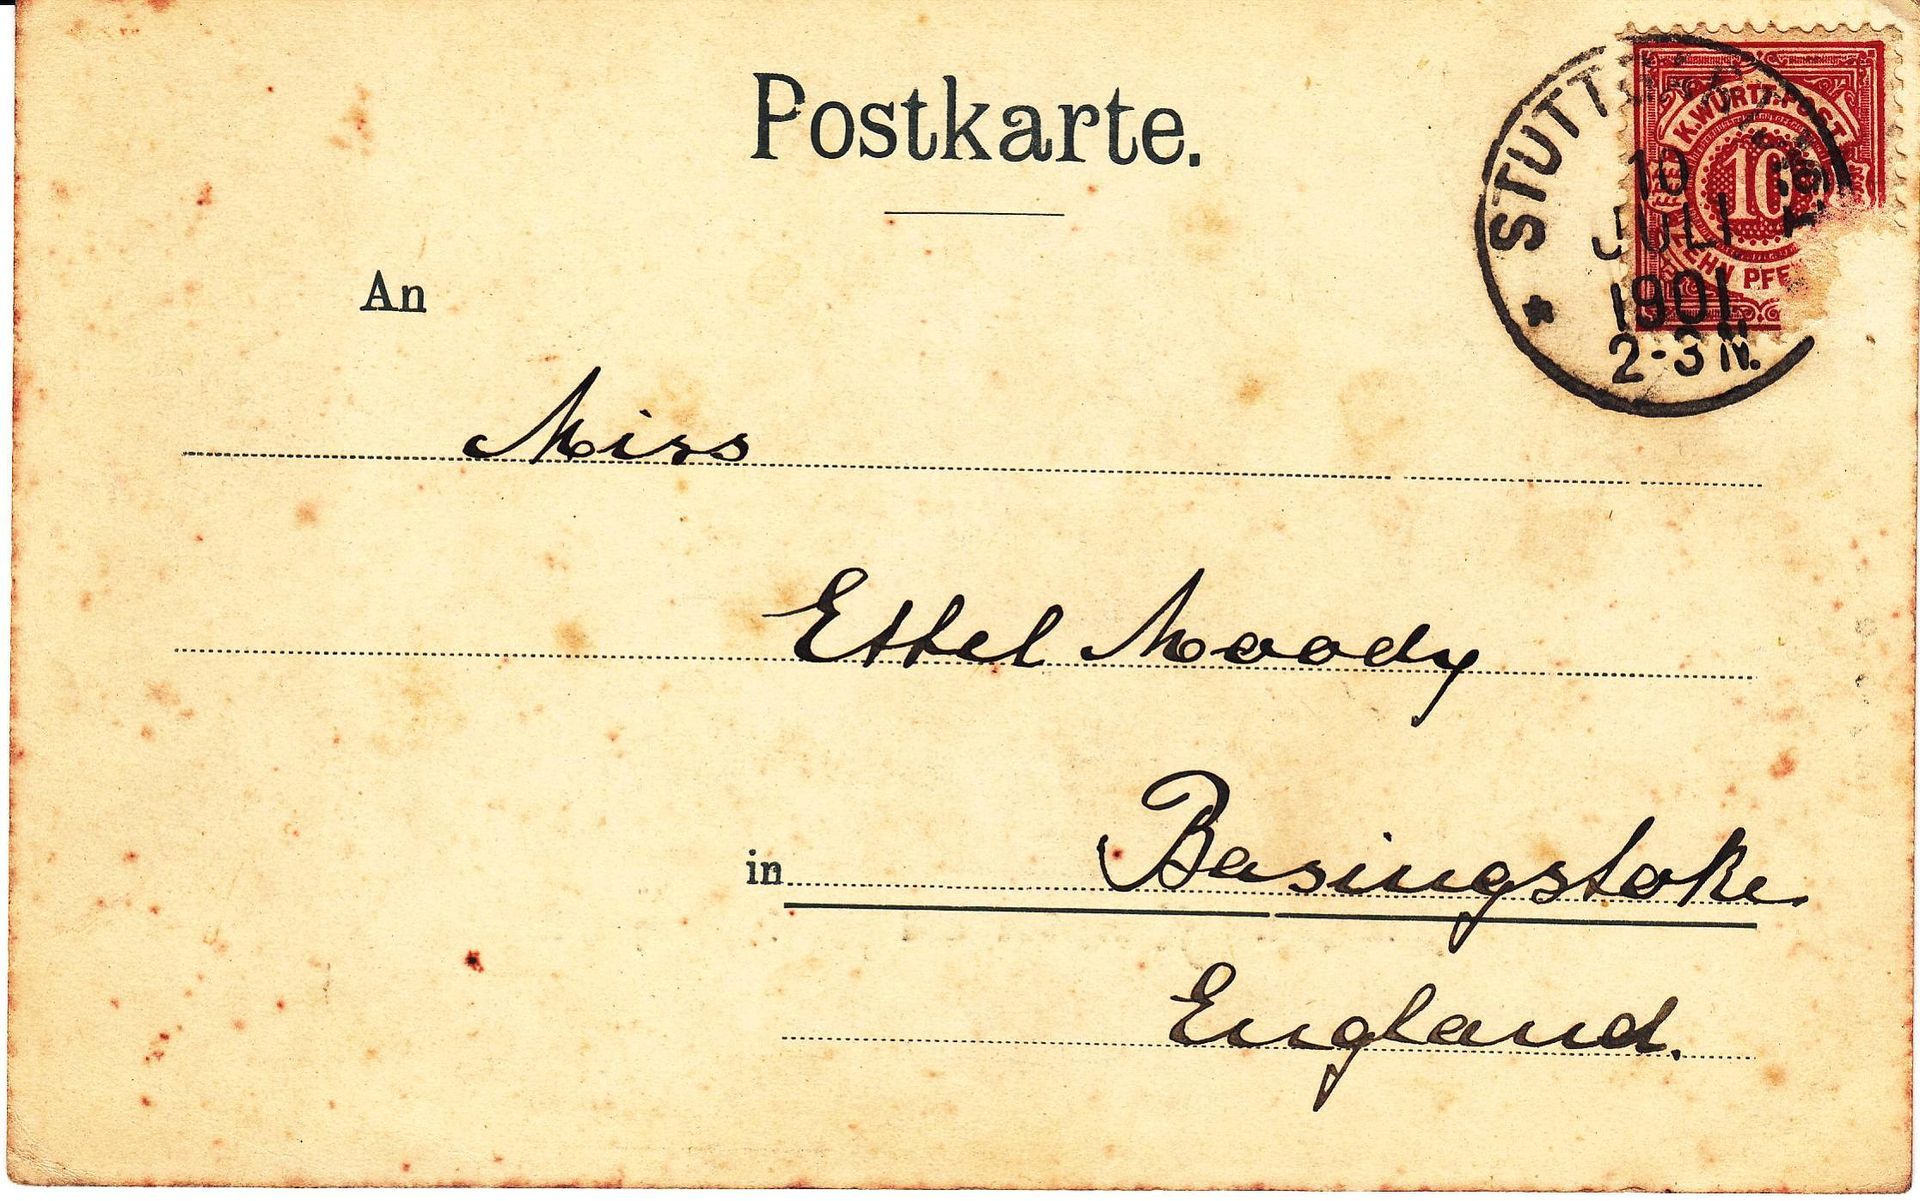 Postkarte.
STUTTGART
10
JULI
1901
2-3 N.
K.WÜRTT.POST
10
ZEHN PFE
An
Miss
Ethel Moody
in Basingstoke.
England.